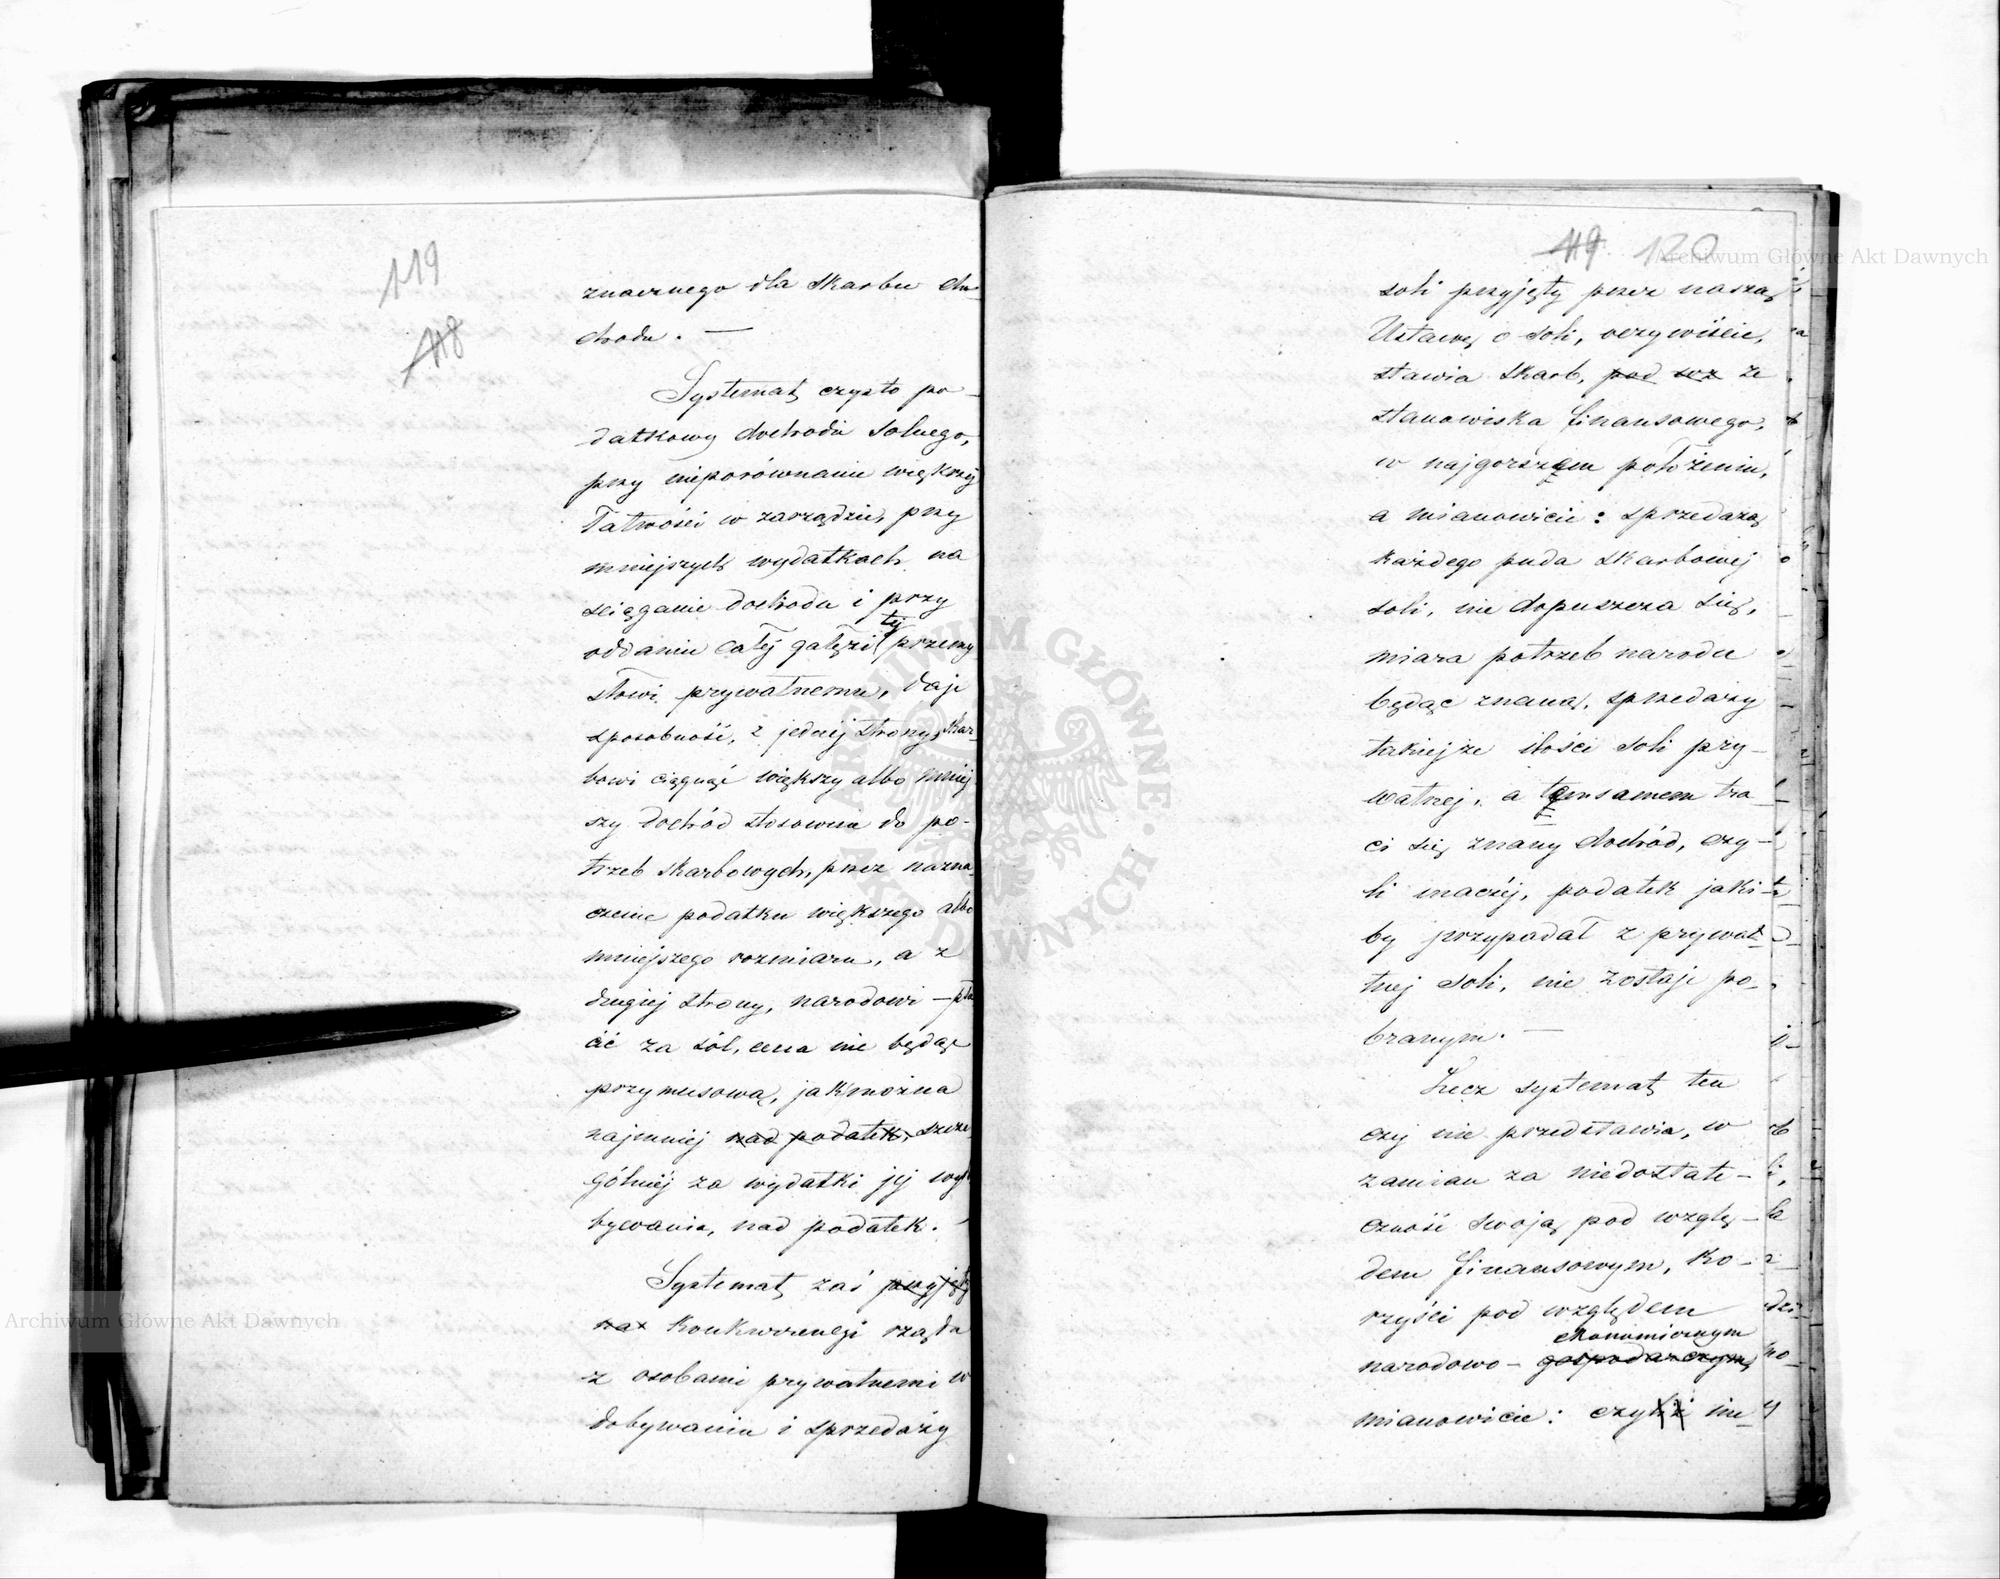 119
118
znacznego dla skarbu do-
chodu. —
Systemat czysto po-
datkowy dochodu solnego,
przy nieporównanie większej
łatwości w zarządzie, przy
mniejszych wydatkach na
ściąganie dochodu i przy
oddaniu całej gałęzi tej przemy
słowi prywatnemu, daje
sposobność, z jednej strony, skar-
bowi ciągnąć większy albo mniej
szy dochód stosownie do po-
trzeb skarbowych, przez nazna
czenie podatku większego albo
mniejszego rozmiaru, a z
drugiej strony, narodowi — pła
cić za sól, cena nie będąc
przymusową, jak można
najmniej nad podatek, szcze-
gólniej za wydatki jej wy
bywania, nad podatek.
Systemat zaś przyjęty
nas konkurrencji rządu
z osobami prywatnemi w
dobywaniu i sprzedaży
119 120
soli przyjęty przez naszą
Ustawę o soli, oczywiście,
stawia skarb, pod wz ze
stanowiska finansowego,
w najgorszem położeniu,
a mianowicie: sprzedażą
każdego puda skarbowej
soli, nie dopuszcza się,
miara potrzeb narodu
będąc znaną, sprzedaży
takiejże ilości soli pry-
watnej, a temsamem tra-
ci się znany dochód, czy-
li inaczej, podatek jaki-
by przypadał z prywat-
nej soli, nie zostaje po-
branym. —
Lecz systemat ten
czy nie przedstawia, w
zamian za niedostate-
czność swoją pod wzglę-
dem finansowym, ko-
rzyści pod względem
ekonomicznym
narodowo - gospodarczym,
mianowicie: czyliż nie
Archiwum Główne Akt Dawnych
Archiwum Główne Akt Dawnych
ARCHIWUM GŁÓWNE AKT DAWNYCH